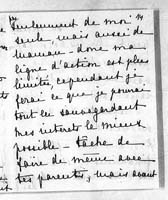 seulement de moi
seule, mais aussi de
maman - donc ma
ligne d'action est plus
limitée, cependant je
ferai ce que je pourrai
tout en sauvegardant
mes intérêts le mieux
possible - tâche de
faire de même avec
tes parents, mais avant